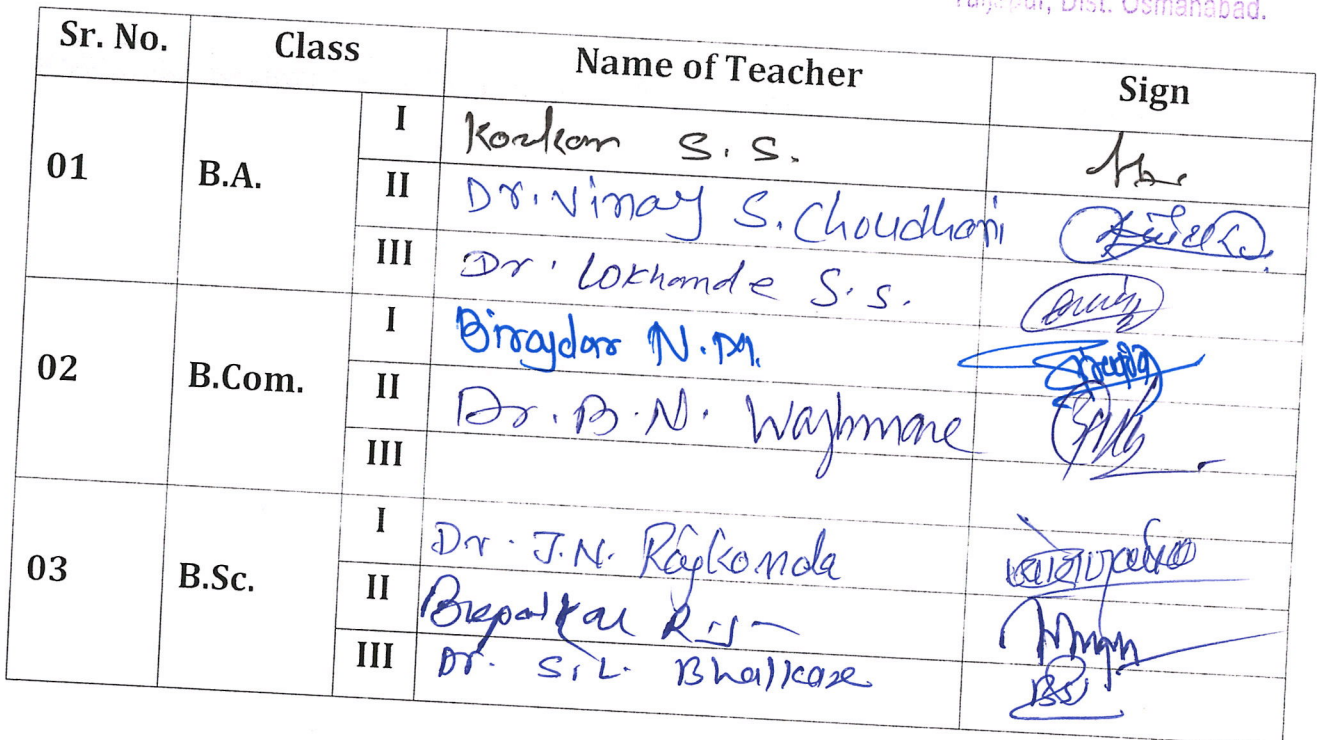 Dist. Osmanabad.
Sr. No. Class Name of Teacher Sign
01 B.A. I Korkon S. S.
II Dr. Vinay S. Choudhari
III Dr. Lokhande S. S.
02 B.Com. I Birajdar N. M.
II Dr. B. N. Waghmare
III
03 B.Sc. I Dr. J. N. Rajkonda
II
III Dr. S. L. Bhalkare